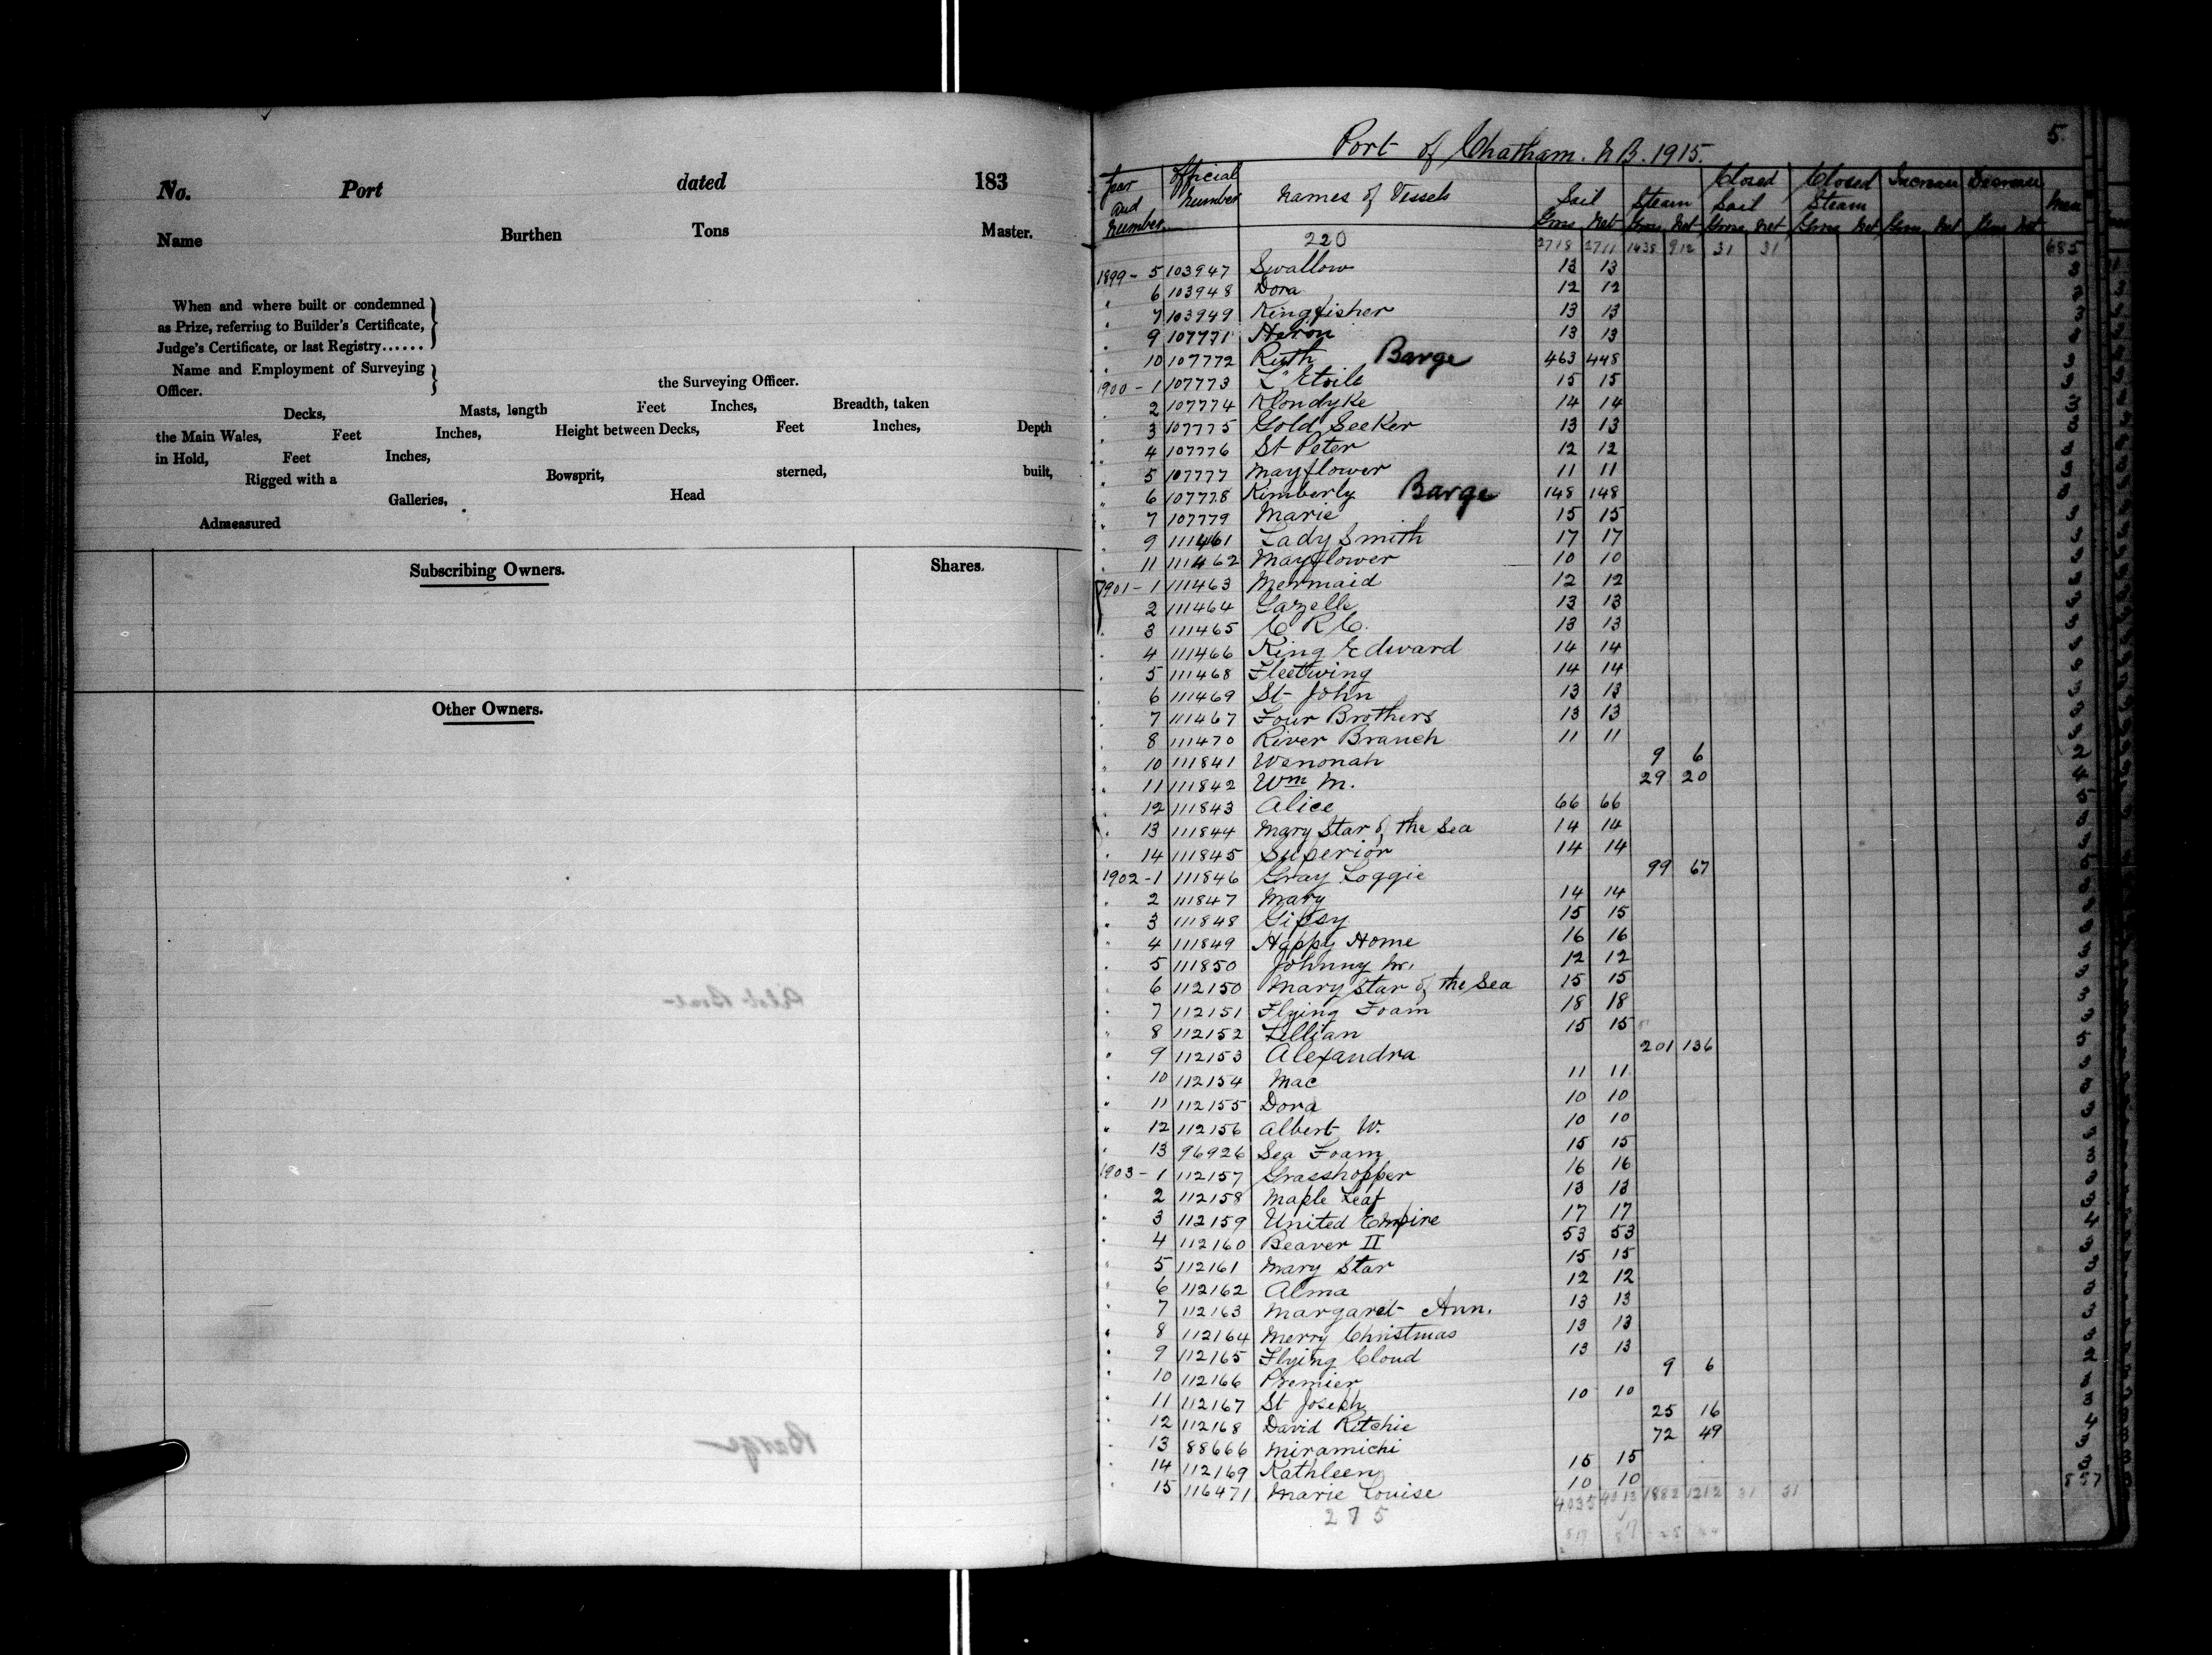 No. Port dated 183
Name Burthen Tons Master.
When and where built or condemned
as Prize, referring to Builder's Certificate,
Judge's Certificate, or last Registry......
Name and Employment of Surveying
Officer. the Surveying Officer.
Decks, Masts, length Feet Inches, Breadth, taken
the Main Wales, Feet Inches, Height between Decks, Feet Inches, Depth
in Hold, Feet Inches,
Rigged with a Bowsprit, sterned, built,
Galleries, Head
Admeasured
Subscribing Owners. Shares.
Other Owners.
5.
Port of Chatham. N B. 1915.
Year and Number Official Number Names of Vessels Sail Gross Net Steam Gross Net Closed Sail Gross Net Closed Steam Gross Net Increase Gross Net Decrease Gross Net Men
220 2718 2711 1438 912 31 31 685
1899 - 5 103947 Swallow 13 13 3
" 6 103948 Dora 12 12 3
" 7 103949 Kingfisher 13 13 3
" 9 107771 Heron 13 13
" 10 107772 Ruth Barge 463 448
1900 - 1 107773 L'Etoile 15 15 3
" 2 107774 Klondyke 14 14 3
" 3 107775 Gold Seeker 13 13 3
" 4 107776 St Peter 12 12 3
" 5 107777 Mayflower 11 11 3
" 6 107778 Kimberly Barge 148 148
" 7 107779 Marie 15 15 3
" 9 111461 Lady Smith 17 17 3
" 11 111462 Mayflower 10 10 3
1901 - 1 111463 Mermaid 12 12 3
" 2 111464 Gazelle 13 13 3
" 3 111465 C R C. 13 13 3
" 4 111466 King Edward 14 14 3
" 5 111468 Fleetwing 14 14 3
" 6 111469 St John 13 13 3
" 7 111467 Four Brothers 13 13 3
" 8 111470 River Branch 11 11 3
" 10 111841 Wenonah 9 6 2
" 11 111842 Wm M. 29 20 4
" 12 111843 Alice 66 66
" 13 111844 Mary Star of the Sea 14 14 3
" 14 111845 Superior 14 14 3
1902 - 1 111846 Gray Loggie 99 67 5
" 2 111847 Mary 14 14 3
" 3 111848 Gipsy 15 15 3
" 4 111849 Happy Home 16 16 3
" 5 111850 Johnny M. 12 12 3
" 6 112150 Mary Star of the Sea 15 15 3
" 7 112151 Flying Foam 18 18 3
" 8 112152 Lillian 15 15 3
" 9 112153 Alexandra 201 136 5
" 10 112154 Mac 11 11 3
" 11 112155 Dora 10 10 3
" 12 112156 Albert W. 10 10 3
" 13 96926 Sea Foam 15 15 3
1903 - 1 112157 Grasshopper 16 16 3
" 2 112158 Maple Leaf 13 13 3
" 3 112159 United Empire 17 17 3
" 4 112160 Beaver II 53 53 4
" 5 112161 Mary Star 15 15 3
" 6 112162 Alma 12 12 3
" 7 112163 Margaret Ann. 13 13 3
" 8 112164 Merry Christmas 13 13 3
" 9 112165 Flying Cloud 13 13 3
" 10 112166 Premier 9 6 2
" 11 112167 St Joseph 10 10 3
" 12 112168 David Ritchie 25 16 3
" 13 88666 Miramichi 72 49 4
" 14 112169 Kathleen 15 15 3
" 15 116471 Marie Louise 10 10 3
275 4035 4013 1882 1212 31 31